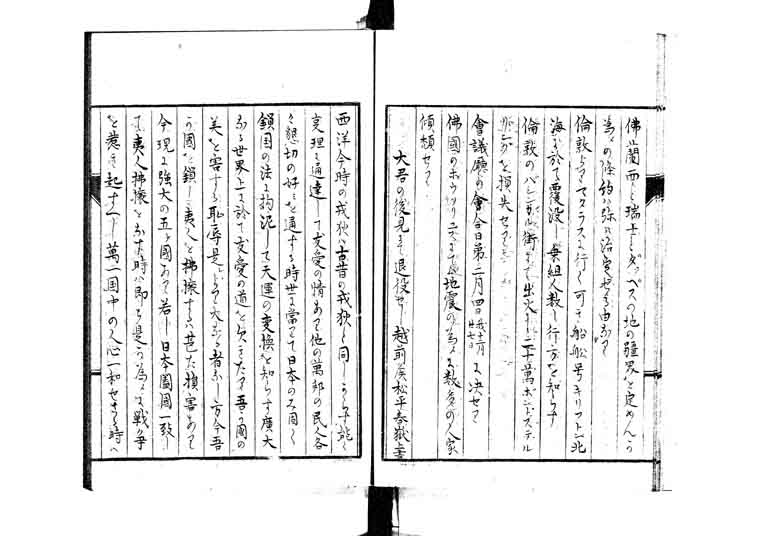 佛蘭西と瑞士とダッペスの地の疆界を定めんか
為メの條約ハ弥以治定せる由なり
倫敦よりマタラスに行く可き船舶号キリフトン北
海に於て覆没し乗組人数も行方を知らす
倫敦のバシン街にて出火ありニ十萬ポンドステル
を損失せり
會議廳の會合日第二月四日に決せり
佛國の地震の為メに数多の人家
傾頽せり
大君の後見にて退役せし越前侯松平春嶽上書
西洋今時の戎狄ハ古昔の戎狄と同しからす能く
変理に通達して友愛の情ありて他の萬邦の民人各
々懇切の好ミを通する時世に當てて日本のミ固く
鎖国の法に拘泥して天運の変換を知らす廣大
なる世界上に於て友愛の道を欠きたり吾か國の
美を害する恥辱是より大なる者なし方今吾
か國を鎖し夷人を拂攘するハ甚た損害あり
今現に強大の五ヶ國あり若し日本闔國一致し
て夷人拂攘をなす時ハ即ち是か為メに戦争
を惹き起すへし萬一国中の人心一和せさる時ハ